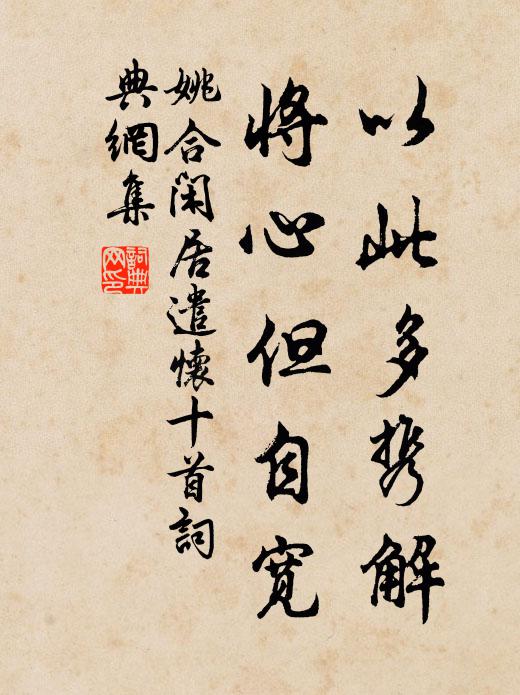 以此多携解
将心但自宽
姚合闲居遣懷十首詞
典網集
詞典
网印